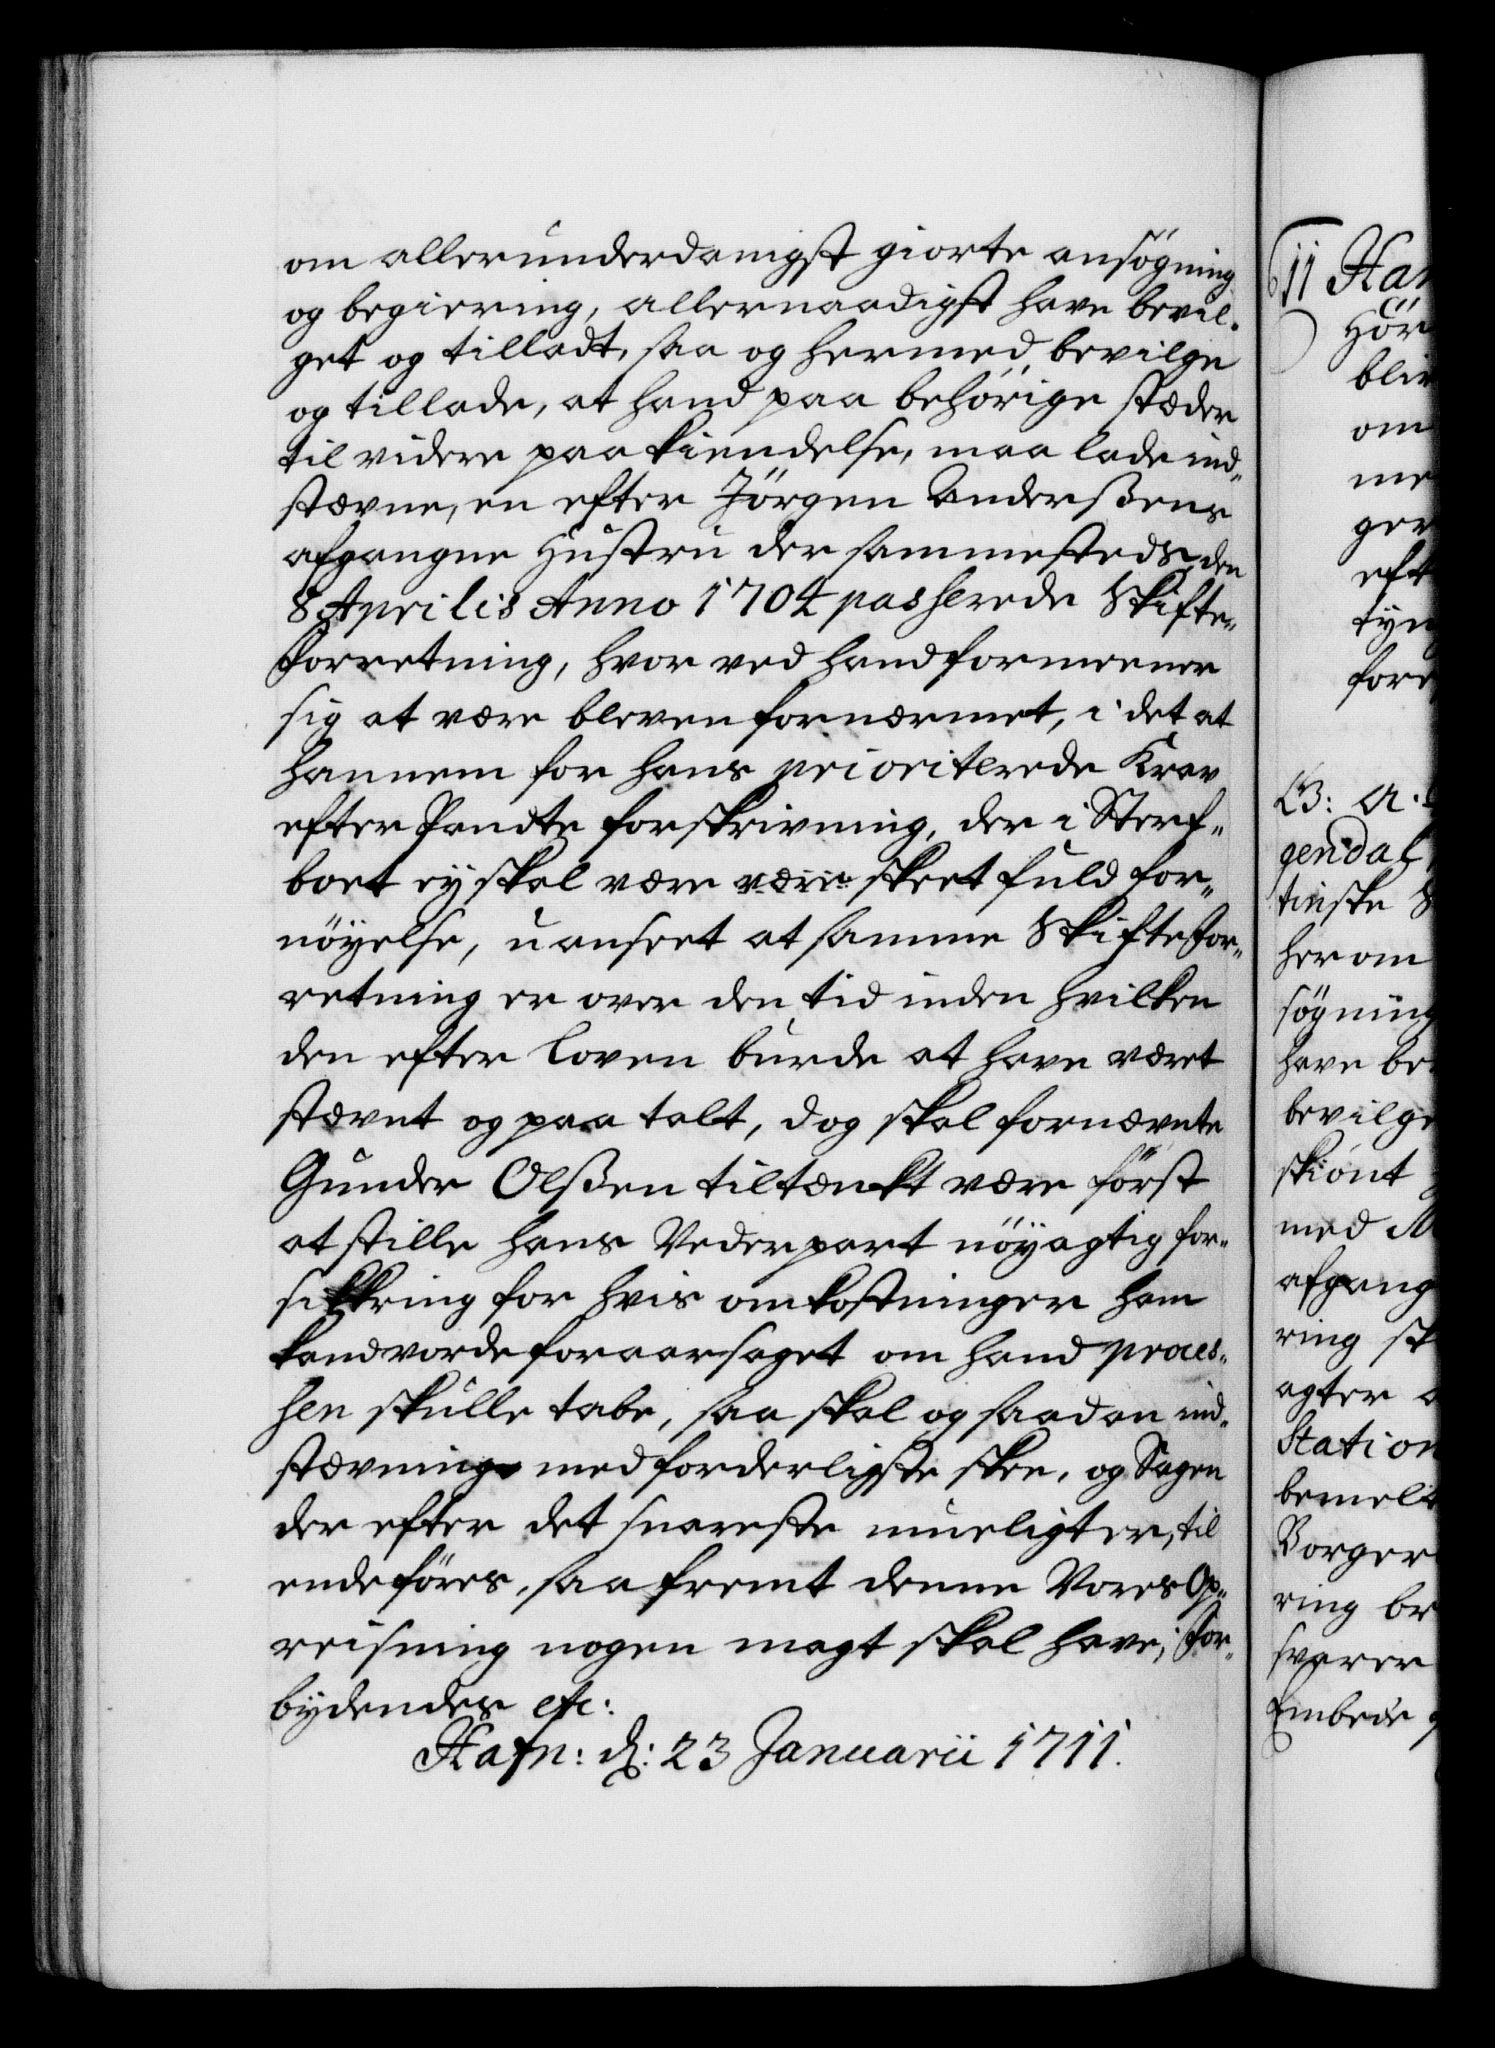 om allerunderdanigst giorte ansögning
og begiering, allernaadigst have bevil-
get og tilladt, saa og hermed bevilge
og tillade, at hand paa behörige stæder
til videre paakiendelse, maa lade ind-
stævne, en efter Jörgen Anderßens
afgangne Hustru der sammesteds den
8 Aprilis Anno 1704 passerede Skifte-
forretning, hvor ved hand formeener
sig at være bleven fornærmet, i det at
hannem for hans prioriterede Krav
efter Pandte forskrivning, der i Sterf-
boet ey skal være være skeet fuld for-
nöyelse, uanseet at samme Skiftefor-
retning er over den tid inden hvilken
den efter Loven burde at have været
stævnt og paa talt, dog skal fornævnte
Gunder Olßen tiltænkt være först
at stille hans Vederpart nöyagtig for-
sikkring for hvis omkostninger ham
kand vorde foraarsaget om hand proces-
sen skulle tabe, saa skal og saadan ind-
stævning med forderligste skee, og Sagen
der efter det snareste mueligt er, til
ende föres, saa fremt denne Vores Op-
reisning nogen magt skal have; For-
bydendes etc:
Hafn: d: 23 Januarii 1711.
11 Han
Hör
bliv
om
me
ger
eft
tyn
fore
B: A.
gendal
tinske S
her om
søgning
have be
bevilge
skiönt
med
afgang
ring sk
agter
Station
bemelt
Borger
ring be
svarer
Embede